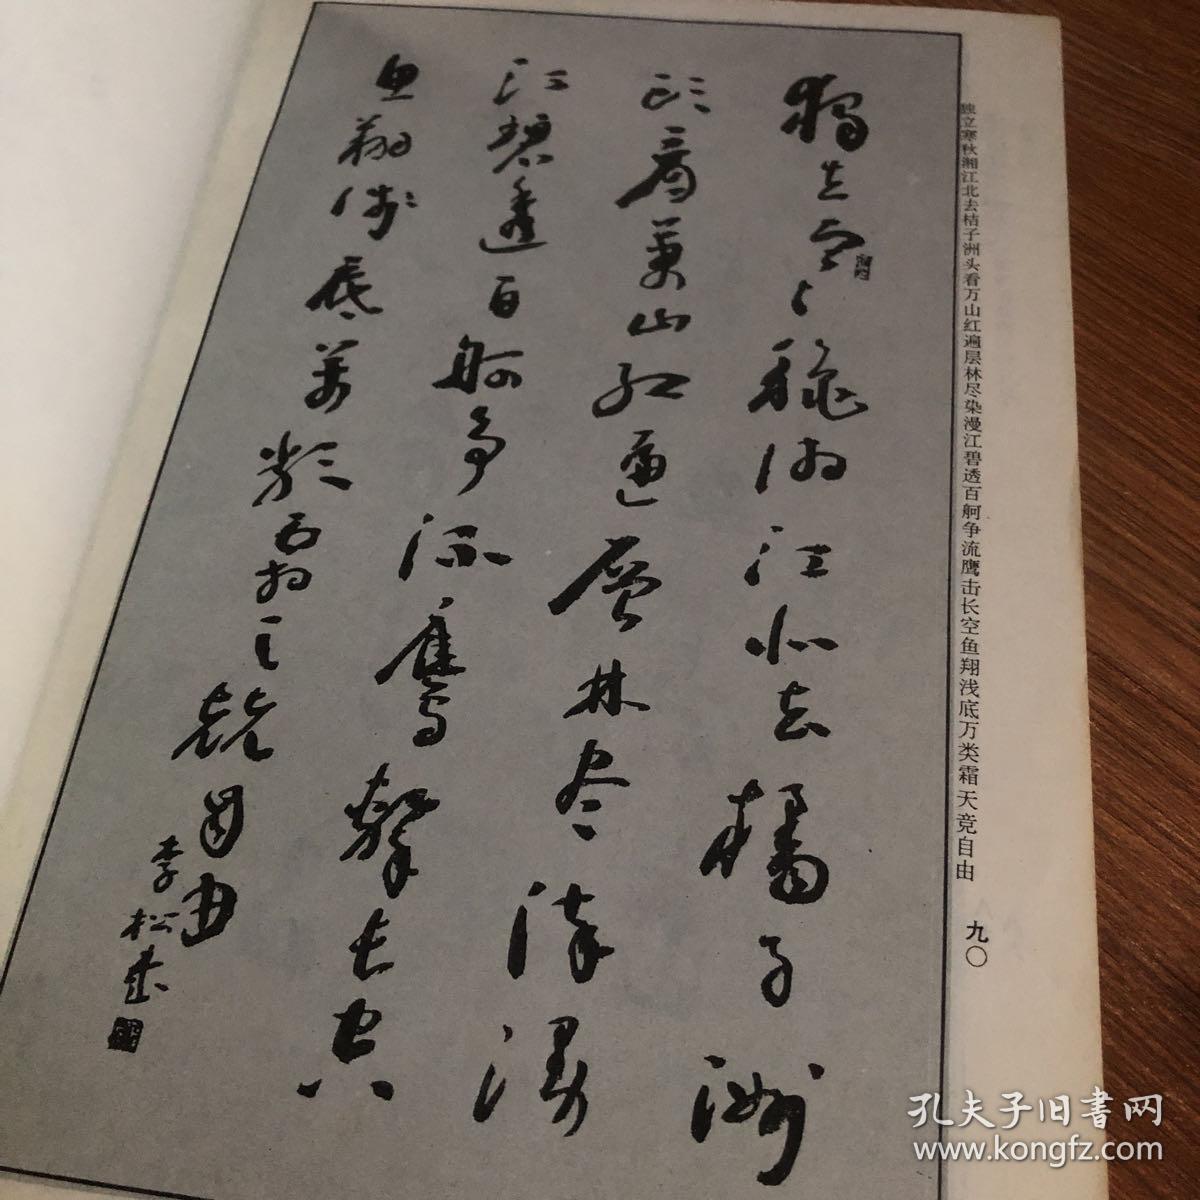 独立寒秋湘江北去桔子洲头看万山红遍层林尽染漫江碧透百舸争流鹰击长空鱼翔浅底万类霜天竞自由
九〇
獨立寒秋湘江北去橘子洲
頭看萬山紅遍層林盡染漫
江碧透百舸爭流鷹擊長空
魚翔淺底萬類霜天競自由
李松
孔夫子旧书网
www.kongfz.com